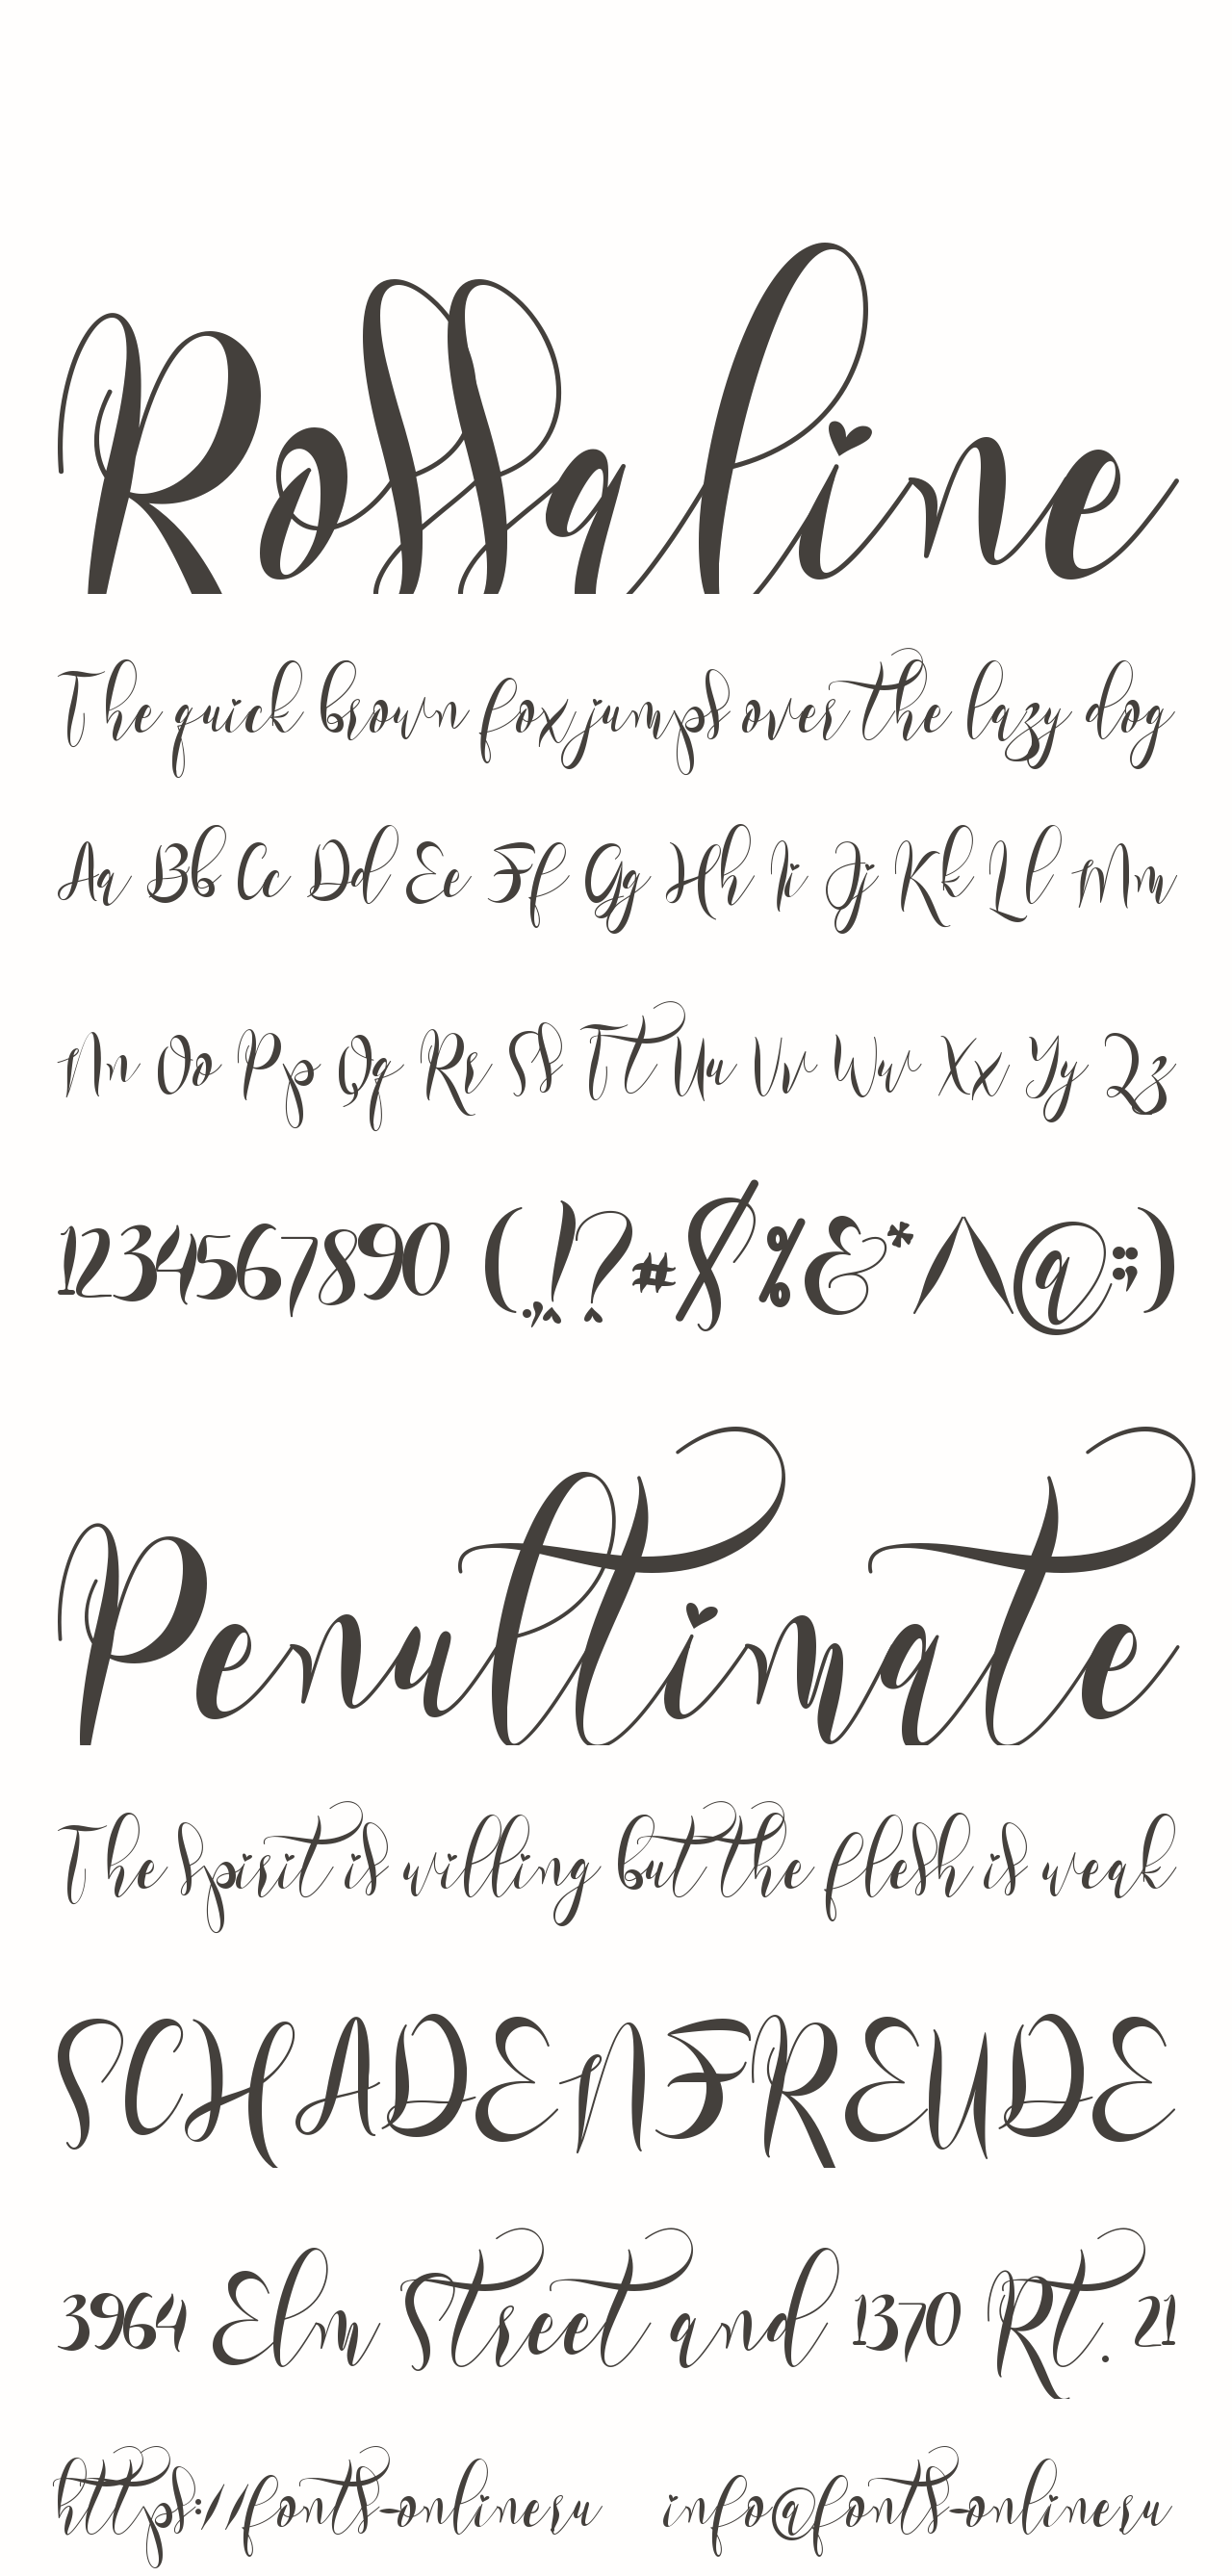 Rossaline
The quick brown fox jumps over the lazy dog
Aa Bb Cc Dd Ee Ff Gg Hh Ii Jj Kk Ll Mm
Nn Oo Pp Qq Rr Ss Tt Uu Vv Ww Xx Yy Zz
1234567890 (.,!?#$%&*/\@:;)
Penultimate
The spirit is willing but the flesh is weak
SCHADENFREUDE
3964 Elm Street and 1370 Rt. 21
https://fonts-online.ru info@fonts-online.ru